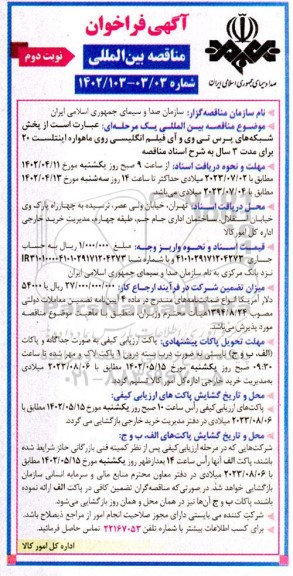 آگهی فراخوان
مناقصه بین‌المللی
نوبت دوم
شماره ۰۳/۰۳-۱۴۰۲/۱۰۳
صدا و سیمای جمهوری اسلامی ایران
نام سازمان مناقصه‌گزار: سازمان صدا و سیمای جمهوری اسلامی ایران
موضوع مناقصه بین المللی یک مرحله‌ای: عبارت است از پخش
شبکه‌های پرس تی وی و آی فیلم انگلیسی روی ماهواره اینتلست ۲۰
برای مدت ۳ سال به شرح اسناد مناقصه
مهلت و نحوه دریافت اسناد: از ساعت ۹ صبح روز یکشنبه مورخ ۱۴۰۲/۰۴/۱۱
مطابق با ۲۰۲۳/۰۷/۰۲ میلادی حداکثر تا ساعت ۱۴ روز سه‌شنبه مورخ ۱۴۰۲/۰۴/۱۳
مطابق با ۲۰۲۳/۰۷/۰۴ میلادی می‌باشد.
محل دریافت اسناد: تهران، خیابان ولی عصر، نرسیده به چهارراه پارک وی
خیابان استقلال، ساختمان اداری جام جم، طبقه چهارم، مدیریت خرید خارجی
اداره کل امور کالا
قیمت اسناد و نحوه واریز وجه: مبلغ ۱/۰۰۰/۰۰۰ ریال به حساب
جاری ۴۱۰۱۰۲۹۱۷۱۲۰۴۲۷۳ و با شماره شبا
نزد بانک مرکزی به نام سازمان صدا و سیمای جمهوری اسلامی ایران
میزان تضمین شرکت در فرآیند ارجاع کار: ۲۷/۰۰۰/۰۰۰/۰۰۰ ریال یا ۵۴۰۰۰
دلار آمریکا انواع ضمانتنامه‌های مندرج در ماده ۴ آیین‌نامه تضمین معاملات دولتی
مصوب ۱۳۹۴/۸/۲۴ هیات محترم وزیران منطبق با ماهیت موضوع مناقصه
مورد پذیرش می‌باشد.
مهلت تحویل پاکات پیشنهادی: پاکت ارزیابی کیفی به صورت جداگانه و پاکات
(الف، ب و ج) بایستی به صورت دربسته درون ۱ پاکت لاک و مهر شده تا ساعت
۰۹:۳۰ صبح روز یکشنبه مورخ ۱۴۰۲/۰۵/۱۵ مطابق با ۲۰۲۳/۰۸/۰۶ میلادی
به مدیریت خرید خارجی اداره کل امور کالا تسلیم گردد.
محل و تاریخ گشایش پاکت های ارزیابی کیفی:
پاکت‌های ارزیابی کیفی رأس ساعت ۱۰ صبح روز یکشنبه مورخ ۱۴۰۲/۰۵/۱۵ مطابق با
۲۰۲۳/۰۸/۰۶ میلادی در دفتر مدیریت خرید خارجی بازگشایی می گردد.
محل و تاریخ گشایش پاکت‌های الف، ب و ج:
شرکت‌هایی که در مرحله ارزیابی کیفی پس از نظر کمیته فنی بازرگانی حائز شرایط شده
باشند، پاکت الف آنها رأس ساعت ۱۴ بعدازظهر روز یکشنبه مورخ ۱۴۰۲/۰۵/۱۵ مطابق
با ۲۰۲۳/۰۸/۰۶ میلادی در دفتر معاون محترم منابع مالی و سرمایه انسانی سازمان
بازگشایی خواهد شد. در صورتی که مناقصه‌گران تضمین کافی در پاکت الف ارائه نموده
باشند، پاکات ب و ج آن‌ها نیز در همان محل و همان روز بازگشایی می‌شود.
شرکت کننده می بایستی دارای مجوز صلاحیت انجام امور از مراجع ذیصلاح باشد.
برای کسب اطلاعات بیشتر با شماره تلفن ۲۲۱۶۷۰۵۳ تماس حاصل فرمائید.
اداره کل امور کالا